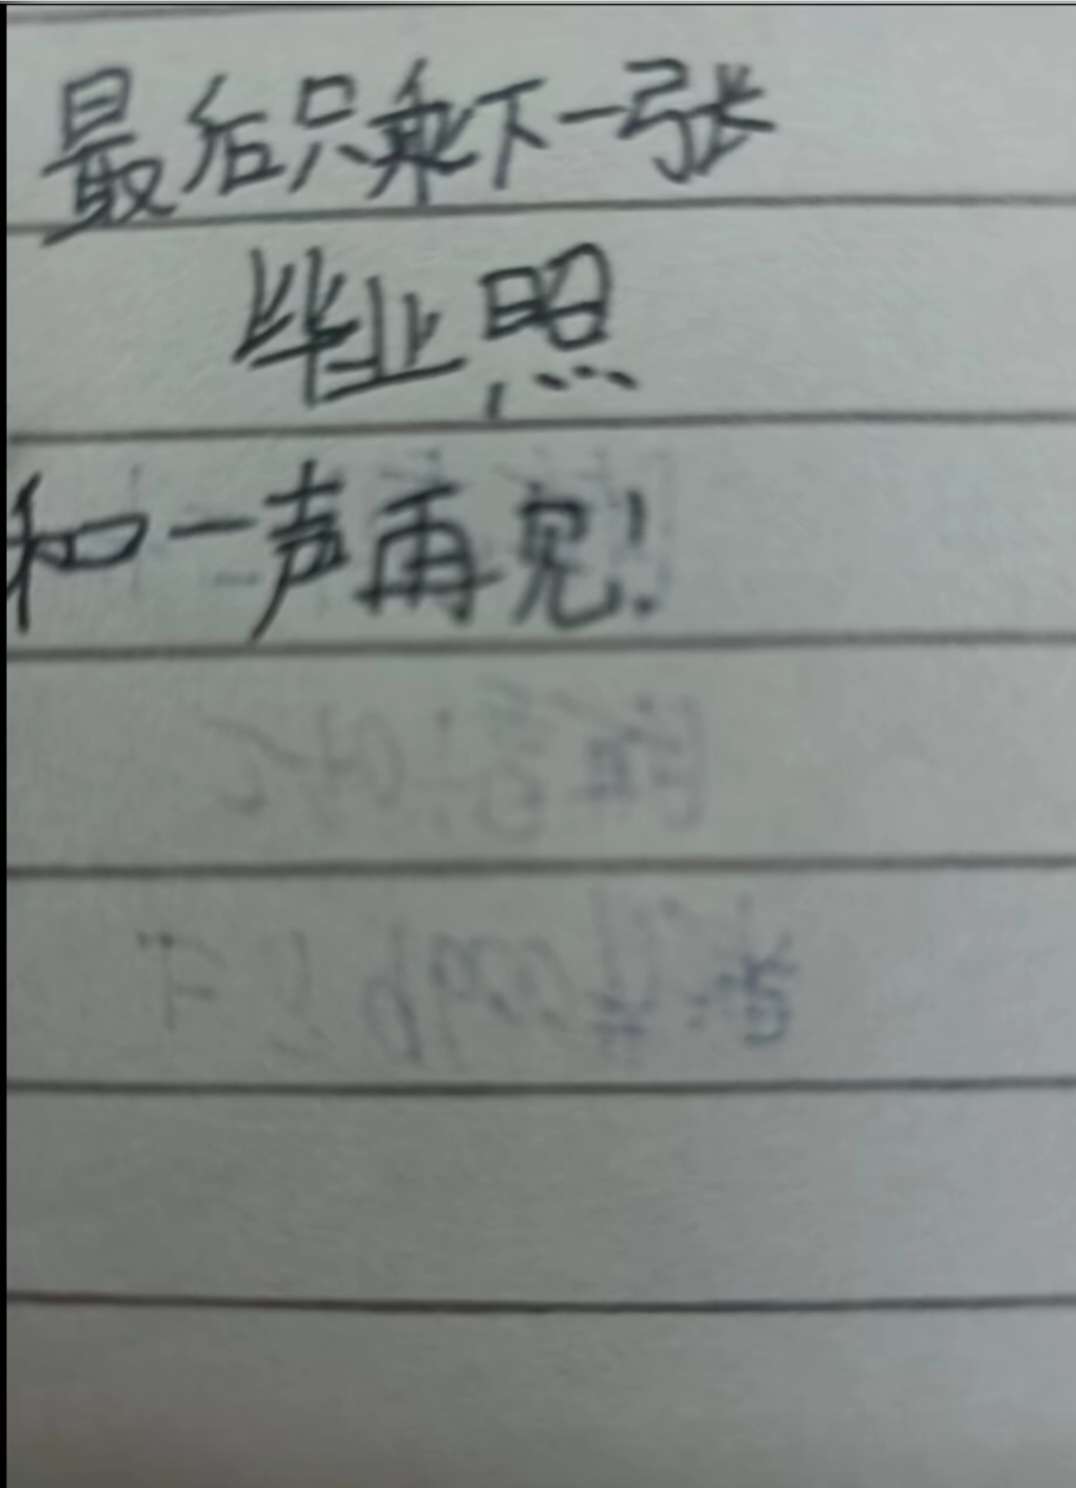 最后只剩下一张
毕业照
和一声再见!